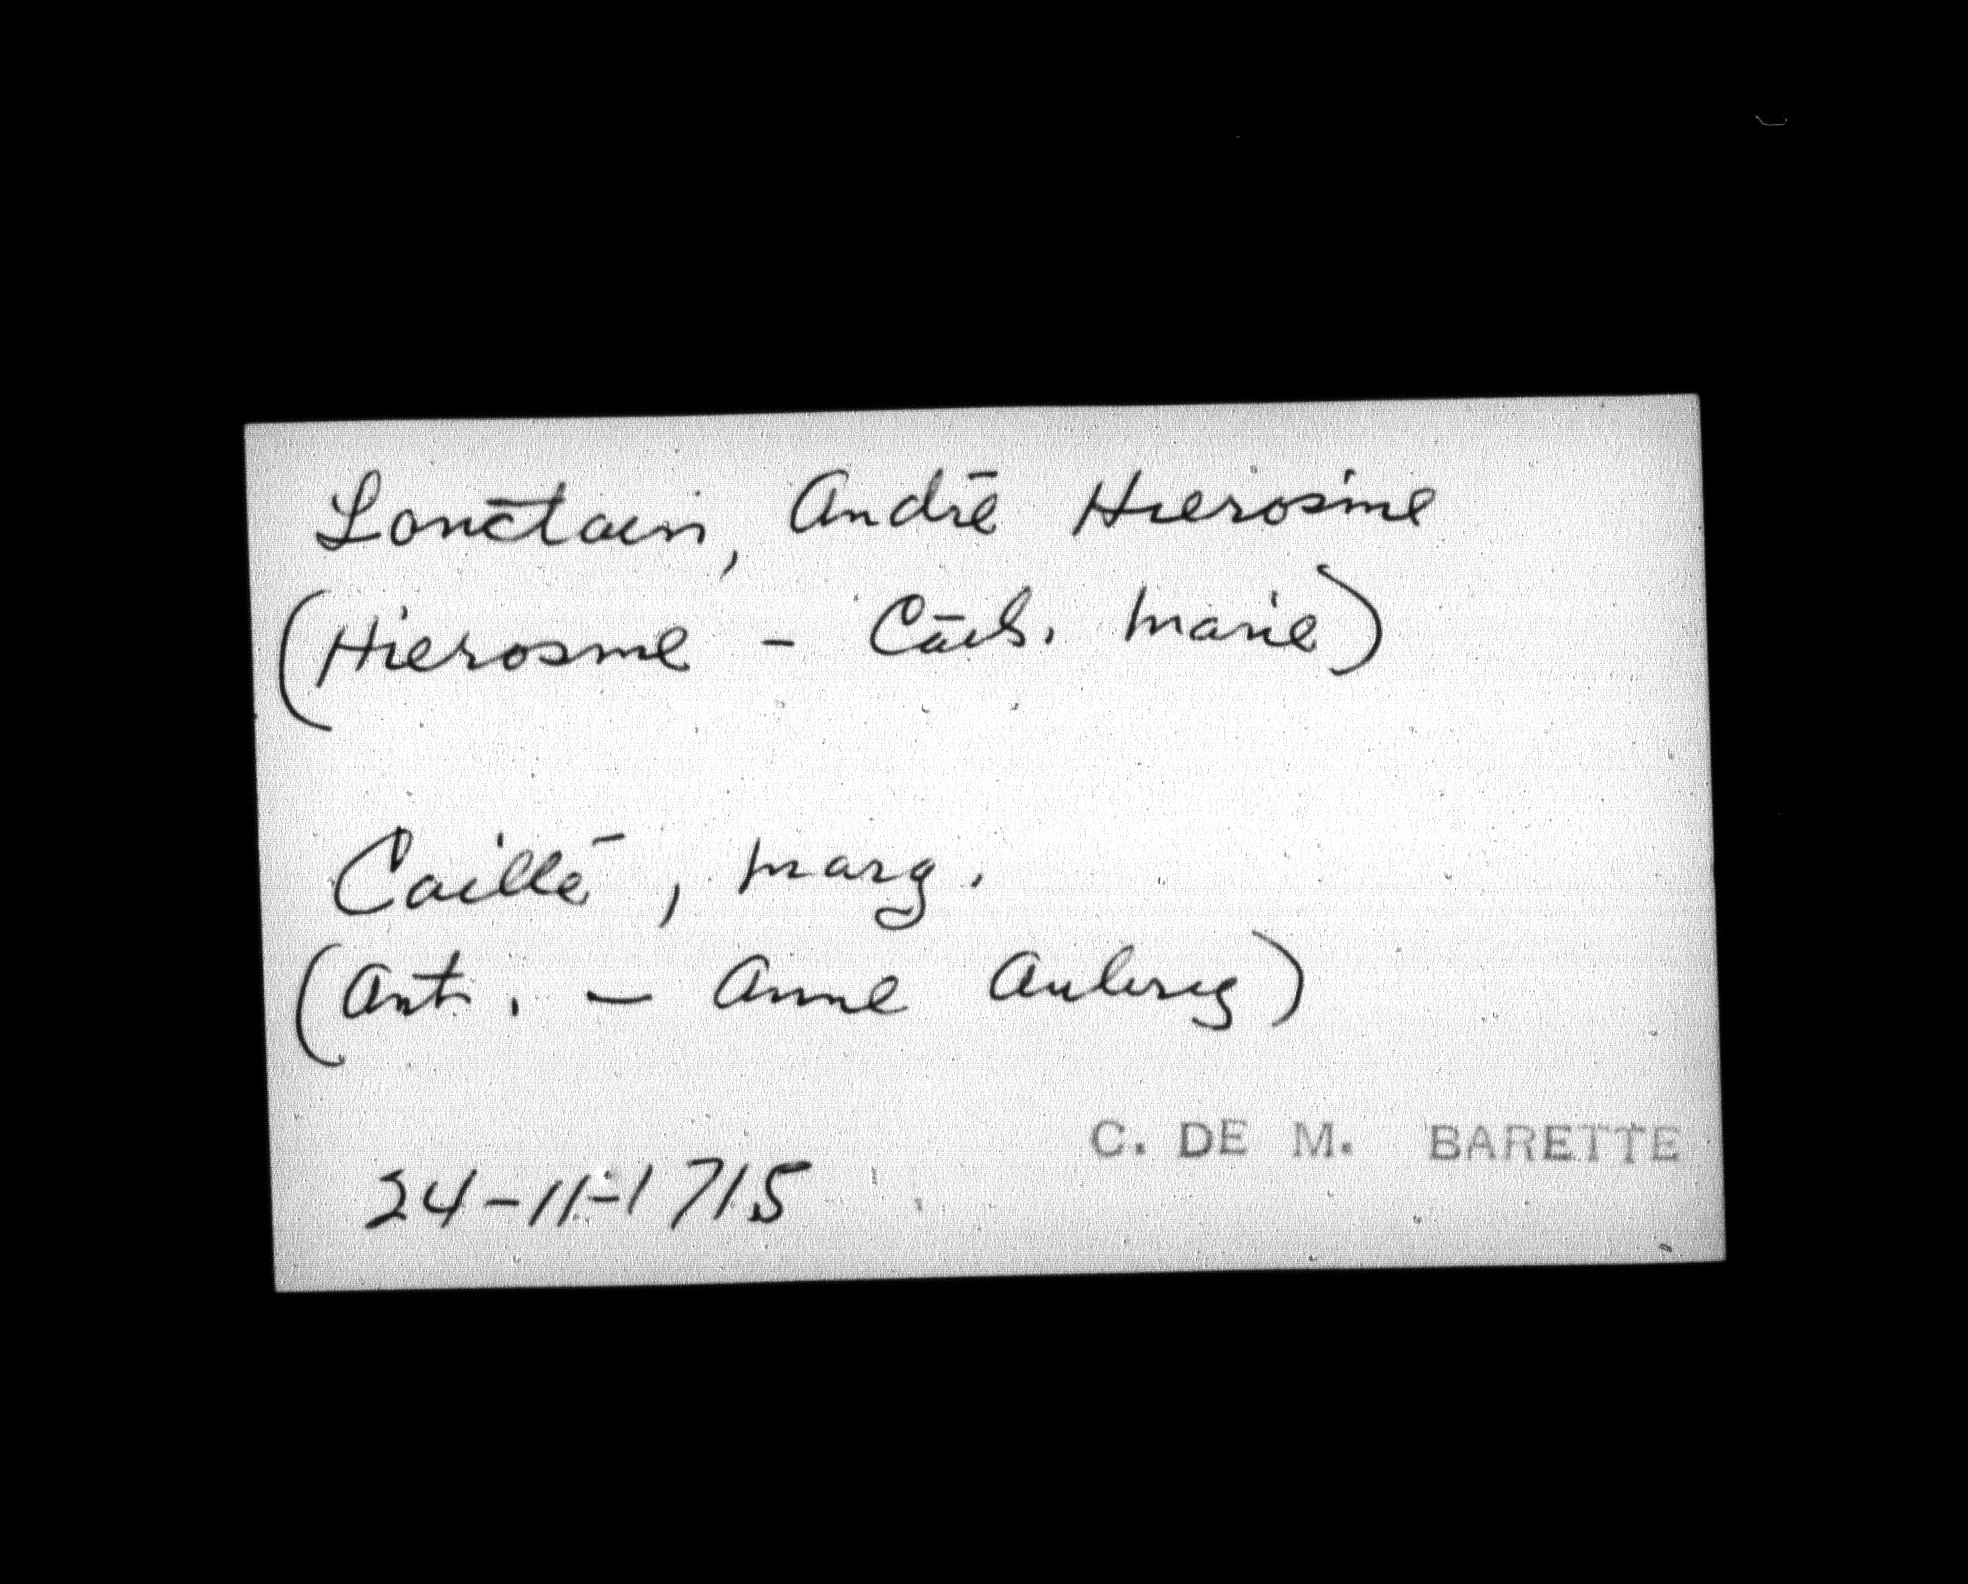 Lonctain, André Hierosme
(Hierosme - Cath. Marie)
Caillé, Marg.
(Ant. - Anne Aubrey)
C. DE M. BARETTE
24-11-1715